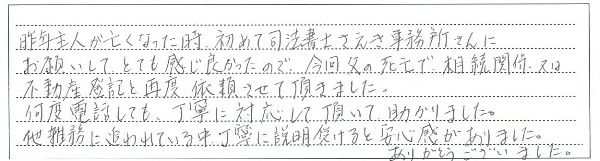 昨年主人が亡くなった時、初めて司法書士さえき事務所さんに
お願いして、とても感じ良かったので、今回父の死亡で、相続関係、又は
不動産登記と再度依頼させて頂きました。
何度電話しても、丁寧に対応して頂いて、助かりました。
他雑務に追われている中、丁寧に説明受けると安心感がありました。
ありがとうございました。